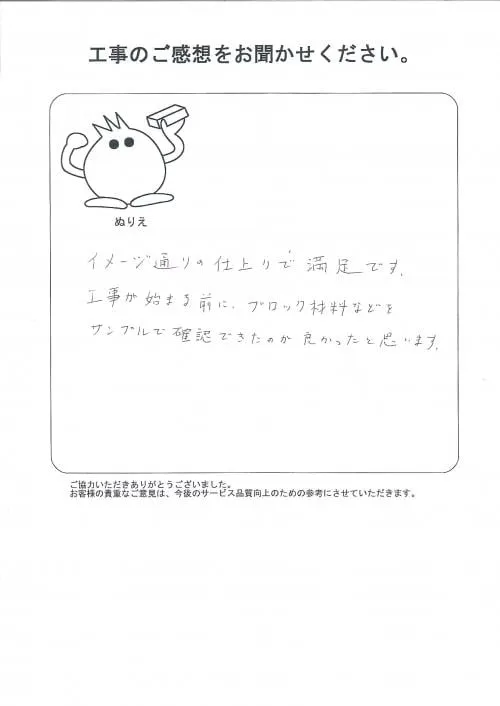 工事のご感想をお聞かせください。
ぬりえ
イメージ通りの仕上りで満足です。
工事が始まる前に、ブロック材料などを
サンプルで確認できたのが良かったと思います。
ご協力いただきありがとうございました。
お客様の貴重なご意見は、今後のサービス品質向上のための参考にさせていただきます。